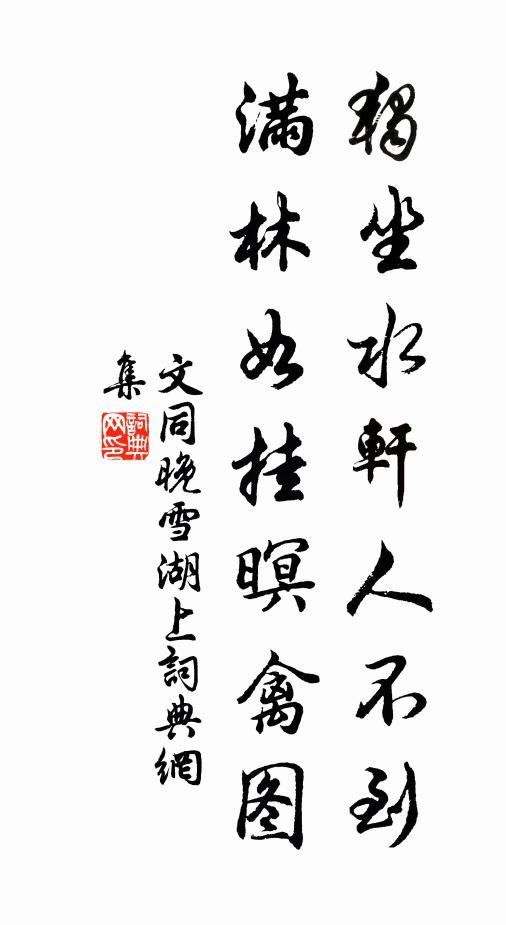 獨坐水軒人不到
滿林如挂暝禽图
文同晚雪湖上詞典網
集
詞典
网印